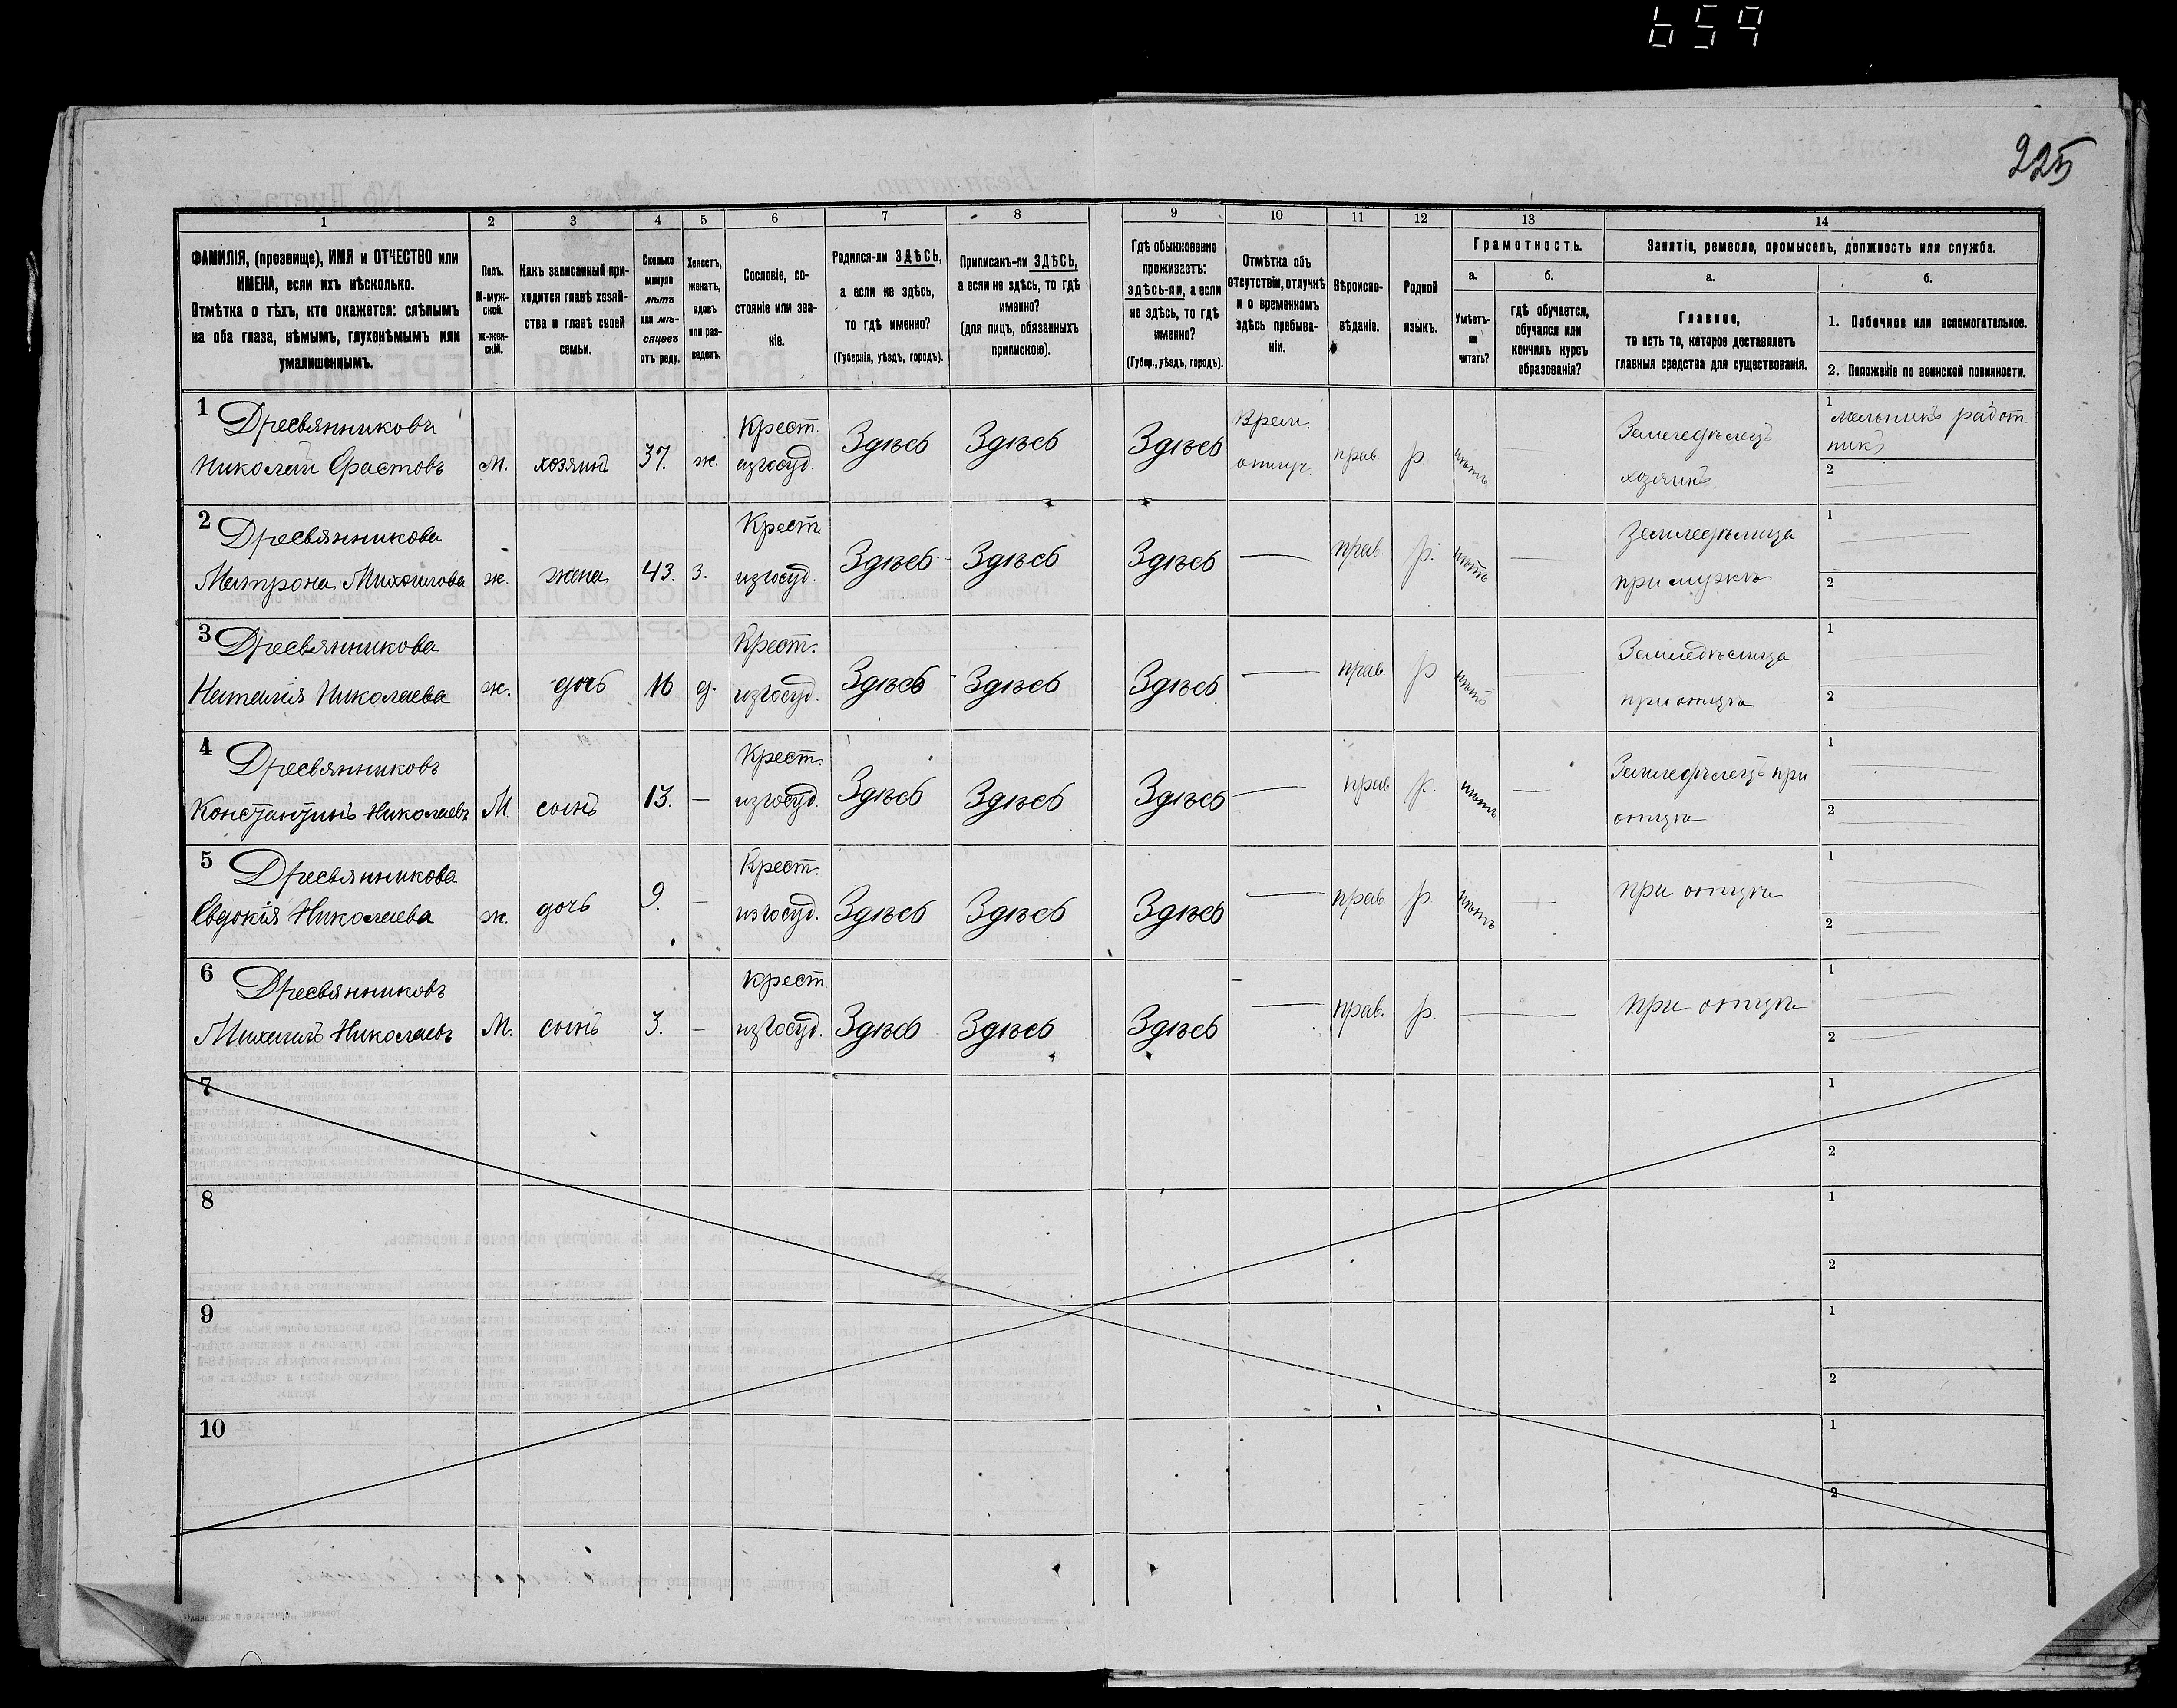 659
225
1 2 3 4 5 6 7 8 9 10 11 12 13 14
ФАМИЛІЯ, (прозвище), ИМЯ и ОТЧЕСТВО или
ИМЕНА, если ихъ нѣсколько.
Отмѣтка о тѣхъ, кто окажется: слѣпымъ
на оба глаза, нѣмымъ, глухонѣмымъ или
умалишеннымъ.
Полъ.
М-муж-
ской.
ж-жен-
скій.
Какъ записанный при-
ходится главѣ хозяй-
ства и главѣ своей
семьи.
Сколько
минуло
лѣтъ
или мѣ-
сяцевъ
отъ роду.
Холостъ,
женатъ,
вдовъ
или раз-
веденъ.
Сословіе, со-
стояніе или зва-
ніе.
Родился-ли ЗДѢСЬ,
а если не здѣсь,
то гдѣ именно?
(Губернія, уѣздъ, городъ).
Приписанъ-ли ЗДѢСЬ,
а если не здѣсь, то гдѣ
именно?
(для лицъ, обязанныхъ
припискою).
Гдѣ обыкновенно
проживаетъ:
здѣсь-ли, а если
не здѣсь, то гдѣ
именно?
(Губер., уѣздъ, городъ).
Отмѣтка объ
отсутствіи, отлучкѣ
и о временномъ
здѣсь пребыва-
ніи.
Вѣроиспо-
вѣданіе.
Родной
языкъ.
Грамотность.
а.
Умѣетъ-
ли
читать?
б.
гдѣ обучается,
обучался или
кончилъ курсъ
образованія?
Занятіе, ремесло, промыселъ, должность или служба.
а.
Главное,
то есть то, которое доставляетъ
главныя средства для существованія.
б.
1. Побочное или вспомогательное.
2. Положеніе по воинской повинности.
1 Дресвянниковъ Крест. Здѣсь Здѣсь Здѣсь Врем. Земледѣлецъ 1 мельникъ работ
Николай Фастовъ М. хозяинъ 37. ж. изъгосуд. отлуч. прав. р. нѣтъ — хозяинъ никъ
2 —
2 Дресвянникова Крест. Здѣсь Здѣсь Здѣсь — прав. р. нѣтъ — Земледѣлица 1 —
Матрона Михаилова ж. жена 43. з. изъгосуд. при мужѣ 2 —
3 Дресвянникова Крест. Здѣсь Здѣсь Здѣсь — прав. р нѣтъ — Земледѣлица 1 —
Наталія Николаева ж. дочь 16 д. изъгосуд. при отцѣ 2 —
4 Дресвянниковъ Крест. Здѣсь Здѣсь Здѣсь — прав р. нѣтъ — Земледѣлецъ при 1 —
Константинъ Николаевъ М. сынъ 13. — изъгосуд. отцѣ 2 —
5 Дресвянникова Крест. Здѣсь Здѣсь Здѣсь — прав. р. нѣтъ — при отцѣ 1 —
Евдокія Николаева ж. дочь 9. — изъгосуд. 2 —
6 Дресвянниковъ Крест Здѣсь Здѣсь Здѣсь — прав. р. — при отцѣ 1 —
Михаилъ Николаевъ М. сынъ 3. — изъгосуд. 2 —
7 1
2
8 1
2
9 1
2
10 1
2